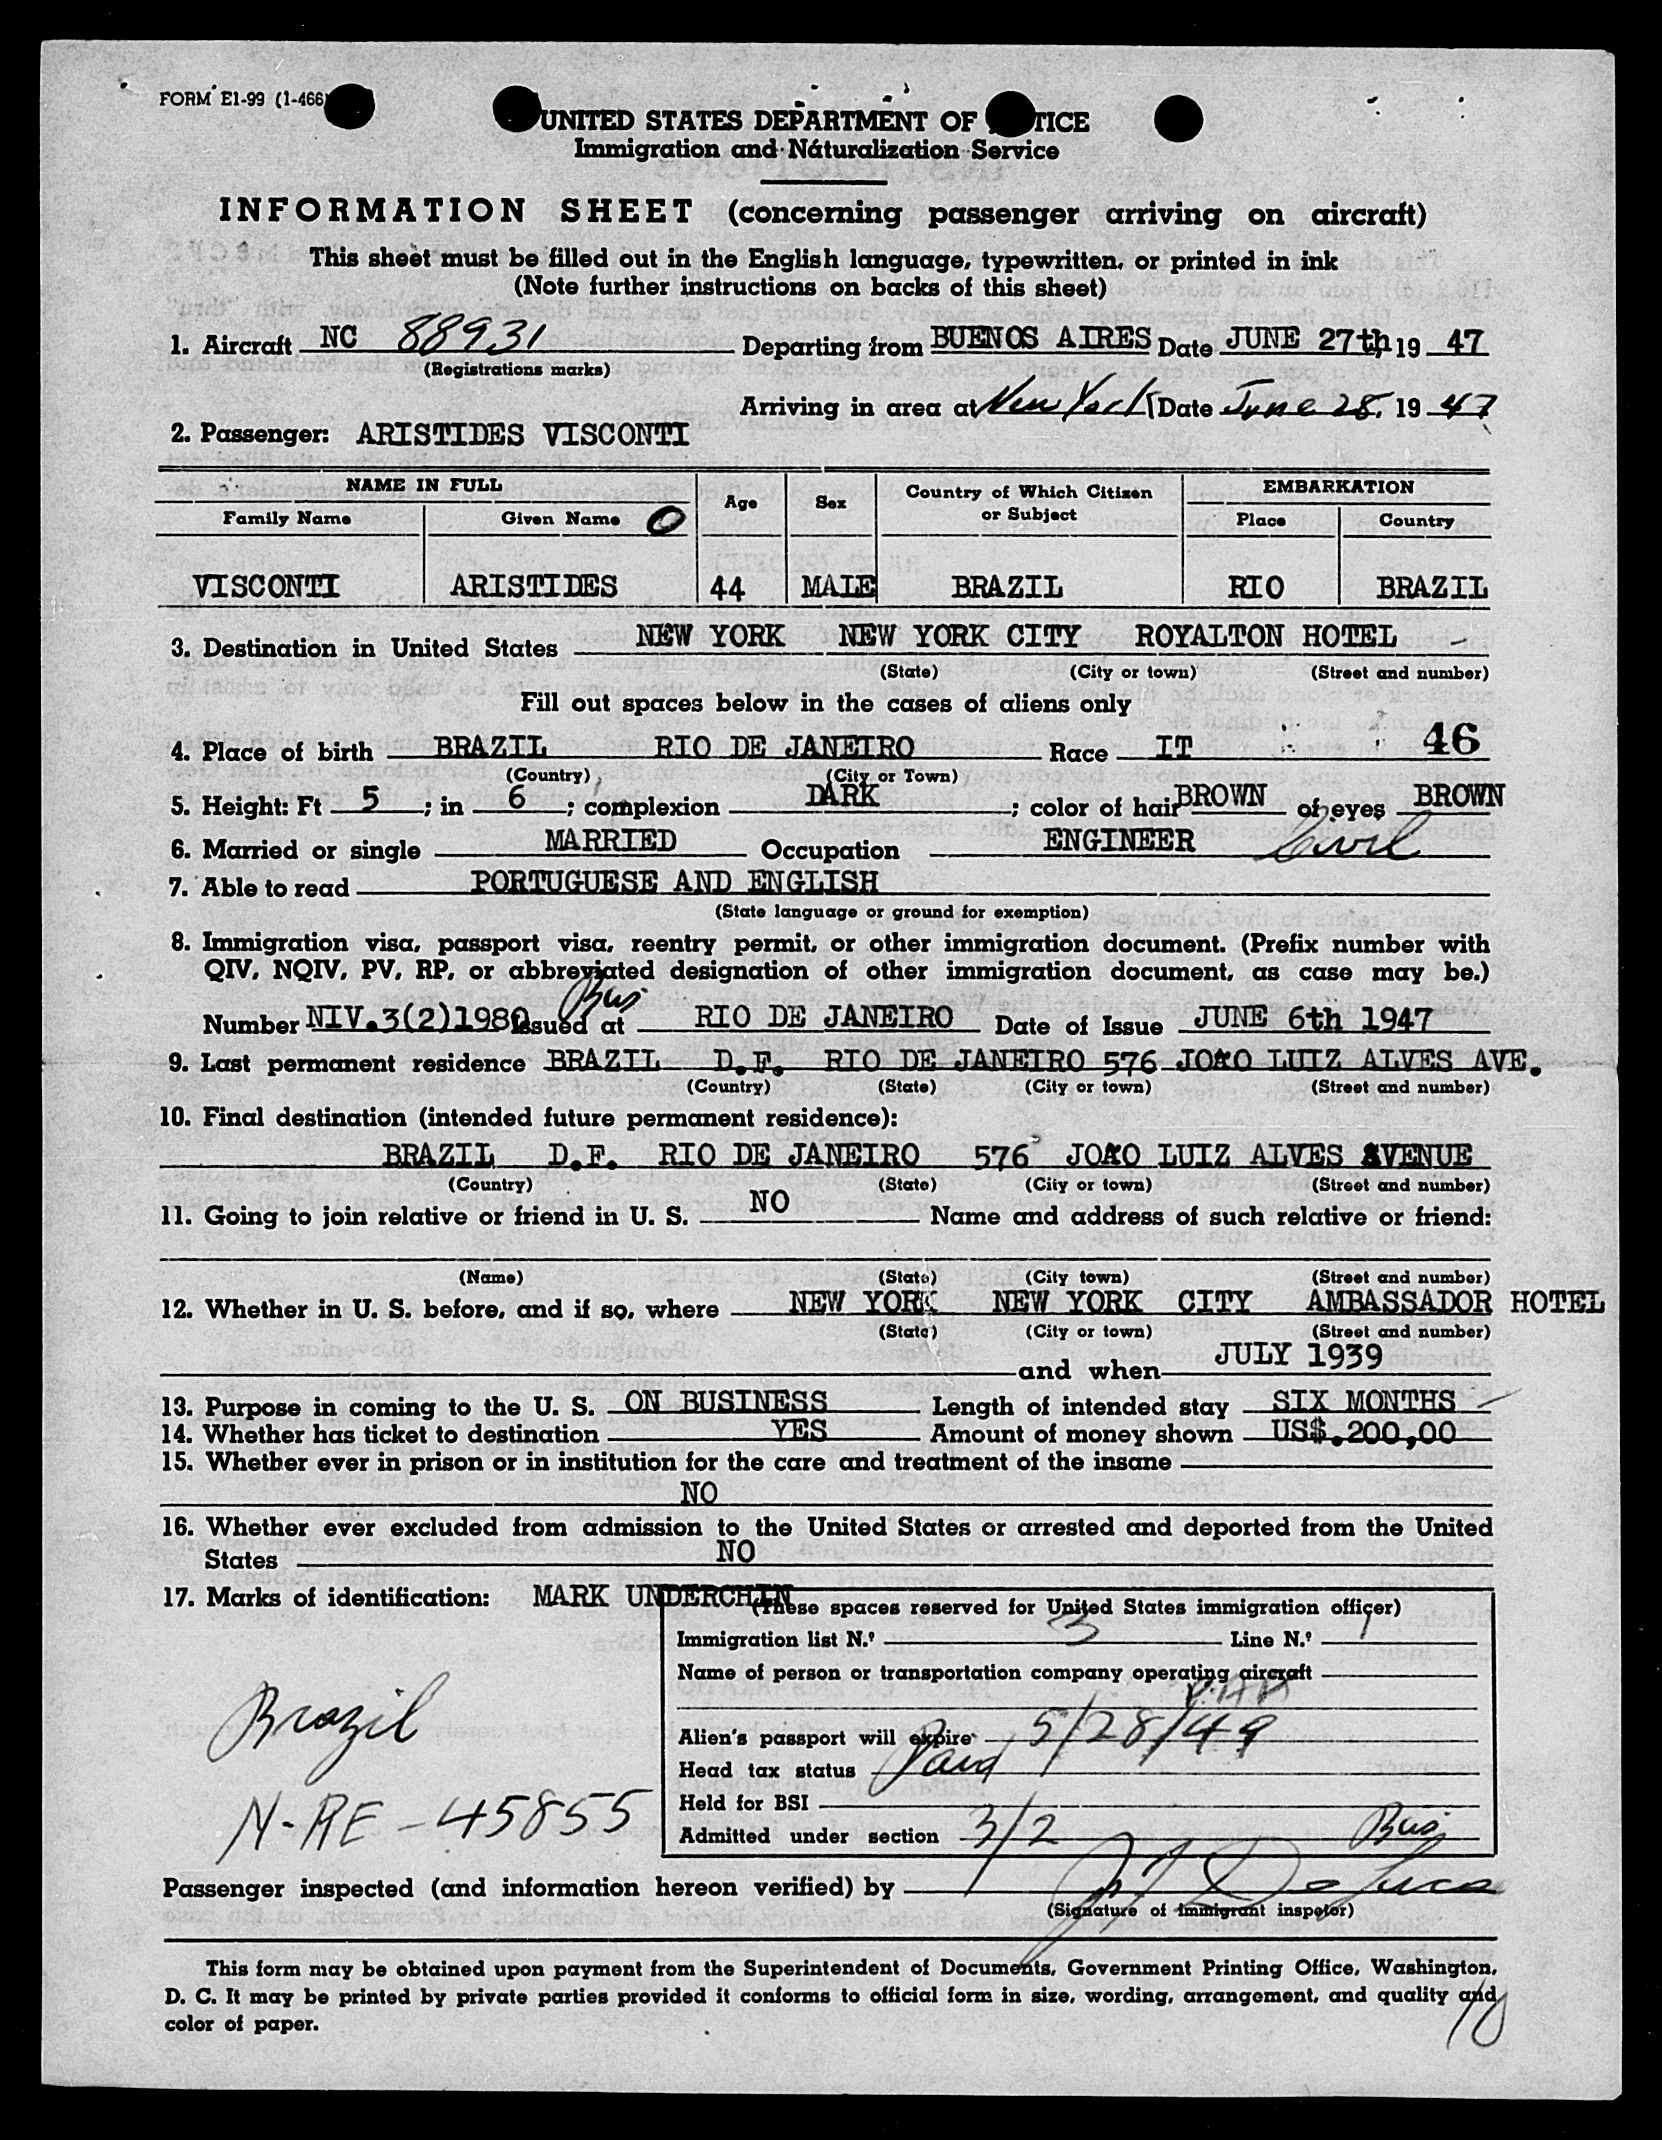 FORM E1-99 (1-466)
UNITED STATES DEPARTMENT OF TICE
Immigration and Naturalization Service
INFORMATION SHEET (concerning passenger arriving on aircraft)
This sheet must be filled out in the English language, typewritten, or printed in ink
(Note further instructions on backs of this sheet)
1. Aircraft NC 88931 Departing from BUENOS AIRES Date JUNE 27th 19 47
(Registrations marks)
Arriving in area at New York Date June 28, 19 47
2. Passenger: ARISTIDES VISCONTI
NAME IN FULL Age Sex Country of Which Citizen or Subject EMBARKATION
Family Name Given Name O Place Country
VISCONTI ARISTIDES 44 MALE BRAZIL RIO BRAZIL
3. Destination in United States NEW YORK NEW YORK CITY ROYALTON HOTEL
(State) (City or town) (Street and number)
Fill out spaces below in the cases of aliens only
4. Place of birth BRAZIL RIO DE JANEIRO Race IT 46
(Country) (City or Town)
5. Height: Ft 5 ; in 6 ; complexion DARK ; color of hair BROWN of eyes BROWN
6. Married or single MARRIED Occupation ENGINEER Civil
7. Able to read PORTUGUESE AND ENGLISH
(State language or ground for exemption)
8. Immigration visa, passport visa, reentry permit, or other immigration document. (Prefix number with
QIV, NQIV, PV, RP, or abbreviated designation of other immigration document, as case may be.)
Bus
Number NIV.3(2)1980 Issued at RIO DE JANEIRO Date of Issue JUNE 6th 1947
9. Last permanent residence BRAZIL D.F. RIO DE JANEIRO 576 JOAO LUIZ ALVES AVE.
(Country) (State) (City or town) (Street and number)
10. Final destination (intended future permanent residence):
BRAZIL D.F. RIO DE JANEIRO 576 JOAO LUIZ ALVES AVENUE
(Country) (State) (City or town) (Street and number)
11. Going to join relative or friend in U. S. NO Name and address of such relative or friend:
(Name) (State) (City town) (Street and number)
12. Whether in U. S. before, and if so, where NEW YORK NEW YORK CITY AMBASSADOR HOTEL
(State) (City or town) (Street and number)
and when JULY 1939
13. Purpose in coming to the U. S. ON BUSINESS Length of intended stay SIX MONTHS
14. Whether has ticket to destination YES Amount of money shown US$.200,00
15. Whether ever in prison or in institution for the care and treatment of the insane
NO
16. Whether ever excluded from admission to the United States or arrested and deported from the United
States NO
17. Marks of identification: MARK UNDERCHIN
(These spaces reserved for United States immigration officer)
Immigration list N.º 3 Line N.º 1
Name of person or transportation company operating aircraft
P.A.A
Alien's passport will expire 5/28/49
Head tax status Paid
Held for BSI
Admitted under section 3/2 Bus
Brazil
N-RE-45855
Passenger inspected (and information hereon verified) by J De Luca
(Signature of immigrant inspetor)
This form may be obtained upon payment from the Superintendent of Documents, Government Printing Office, Washington,
D. C. It may be printed by private parties provided it conforms to official form in size, wording, arrangement, and quality and
color of paper.
10